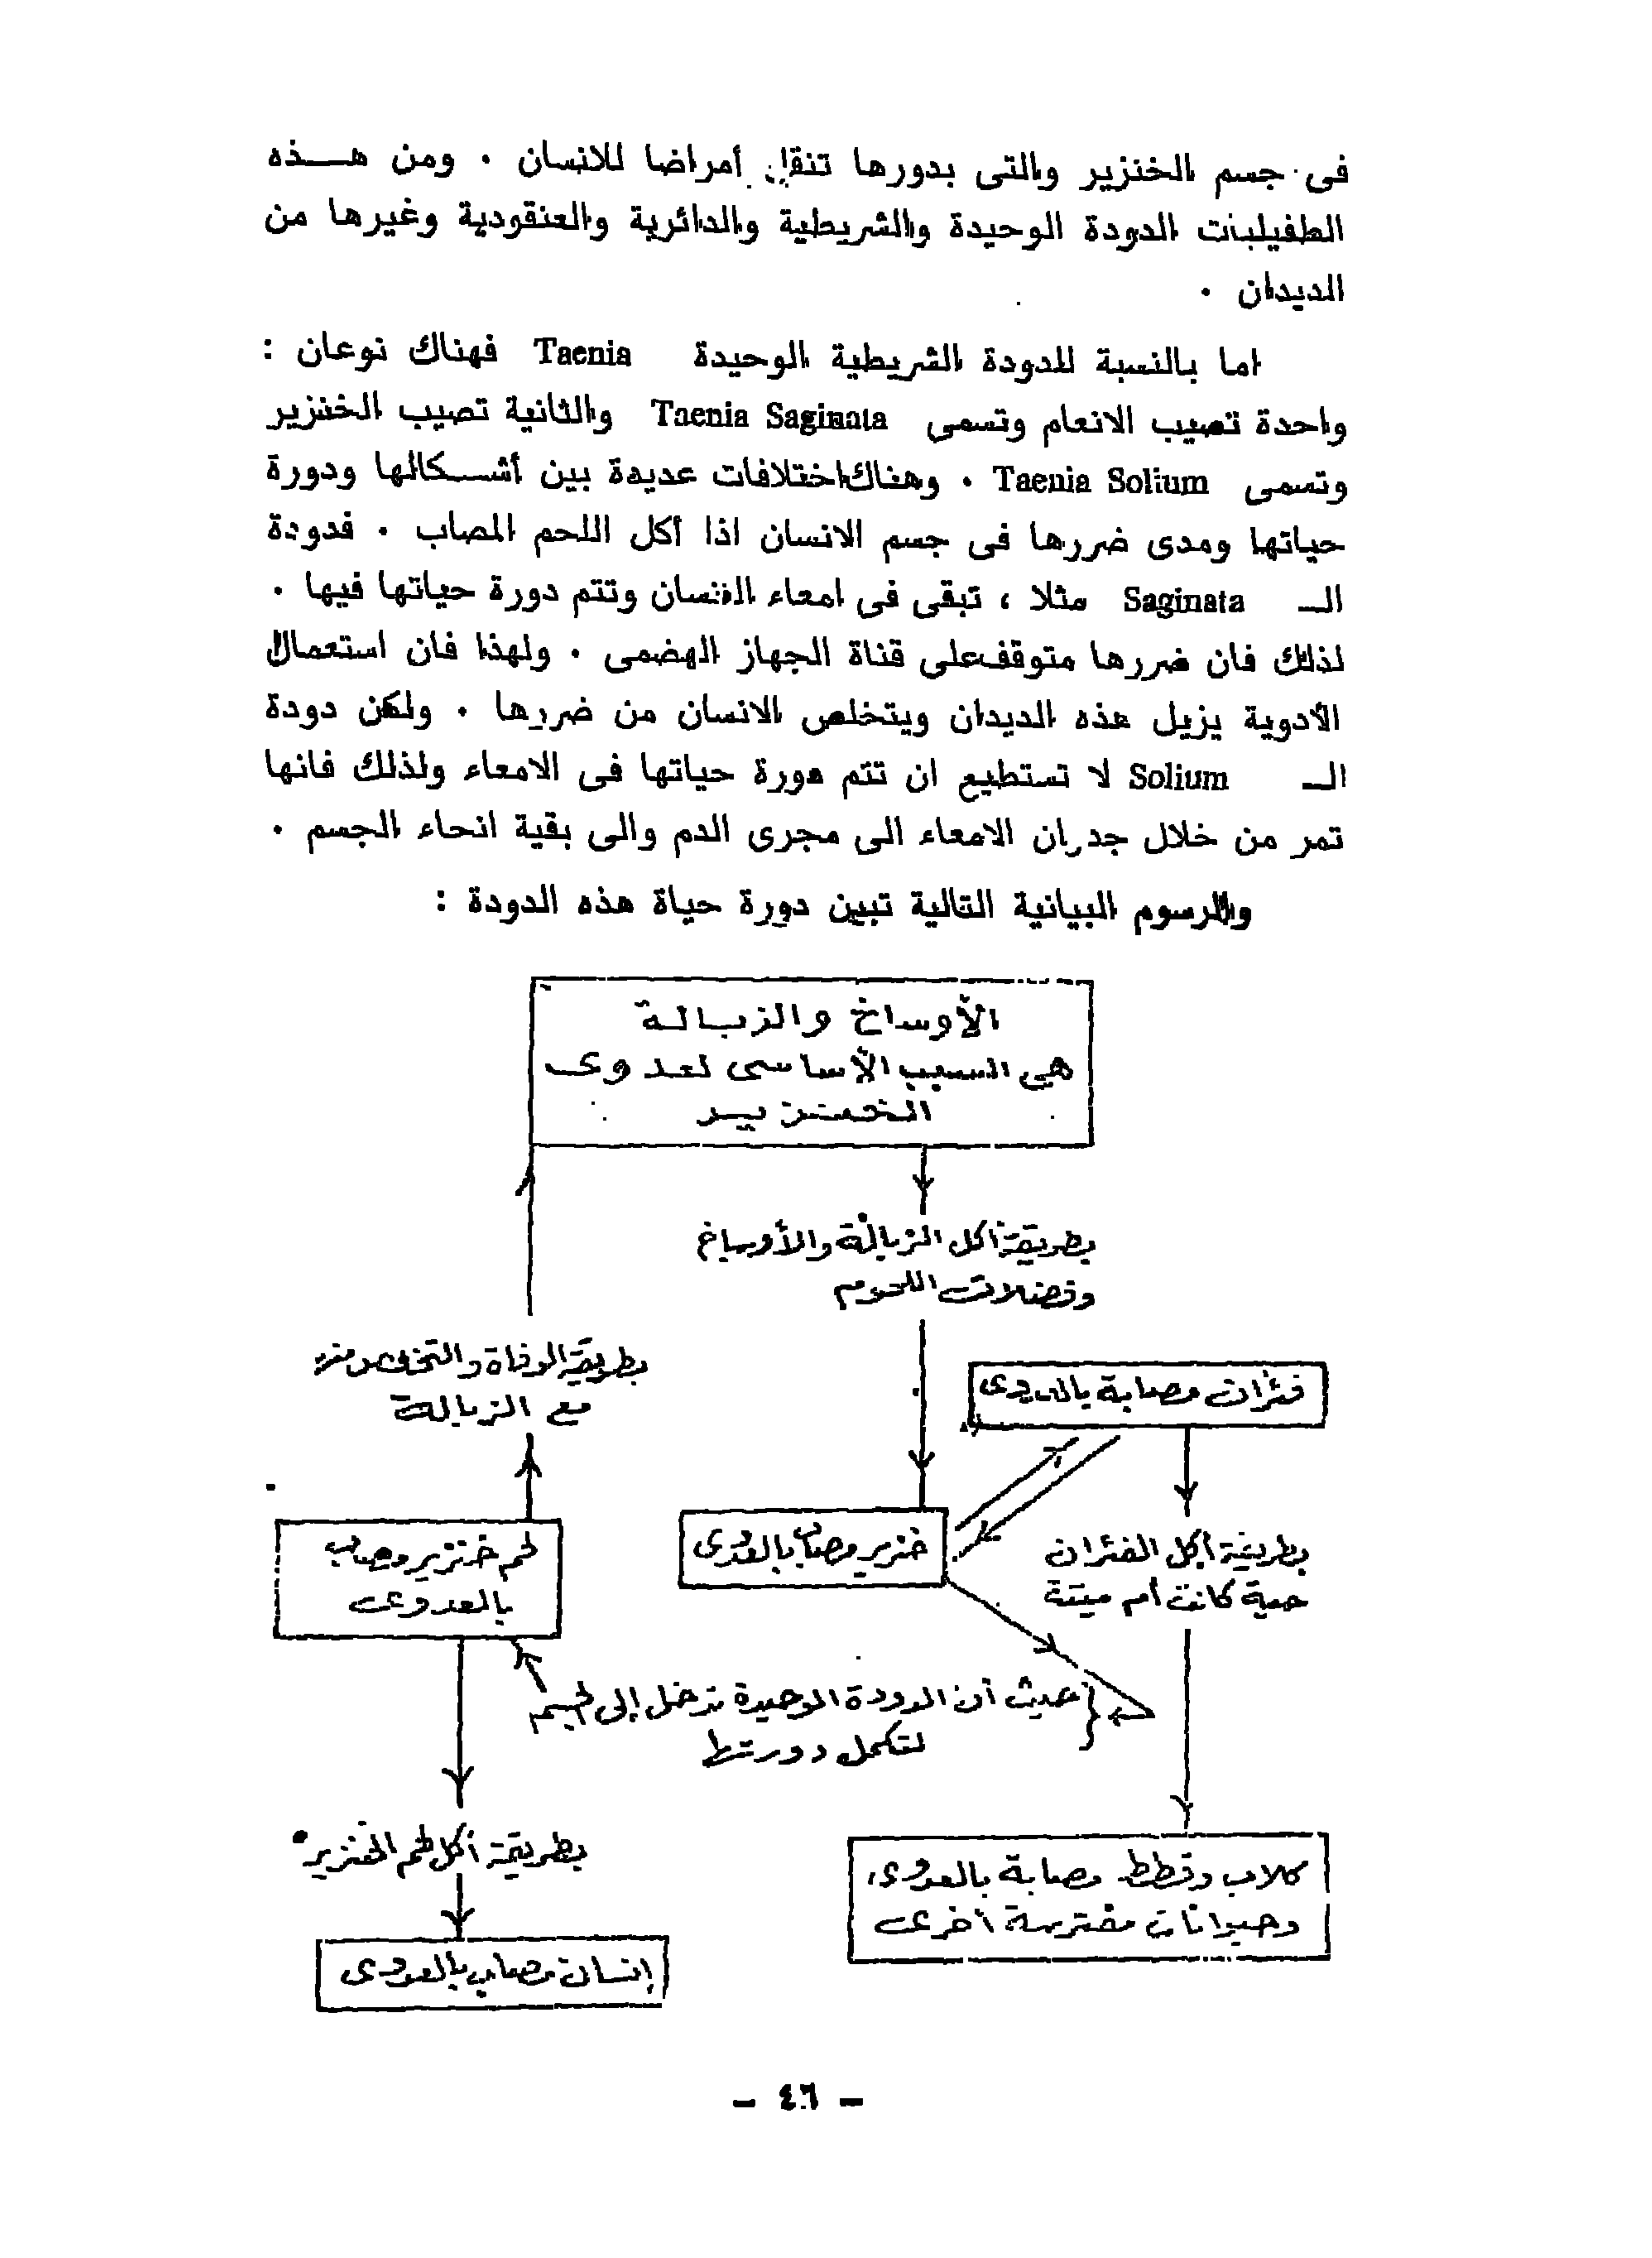 فى جسم الخنزير والتى بدورها تنقل أمراضا للانسان . ومن هـــذه
الطفيليات الدودة الوحيدة والشريطية والدائرية والعنقودية وغيرها من
الديدان .
اما بالنسبة للدودة الشريطية الوحيدة Taenia فهناك نوعان :
واحدة تصيب الانعام وتسمى Taenia Saginata والثانية تصيب الخنزير
وتسمى Taenia Solium . وهناك اختلافات عديدة بين أشـــكالها ودورة
حياتها ومدى ضررها فى جسم الانسان اذا أكل اللحم المصاب . فدودة
الـ Saginata مثلا ، تبقى فى امعاء الانسان وتتم دورة حياتها فيها .
لذلك فان ضررها متوقف على قناة الجهاز الهضمى . ولهذا فان استعمال
الأدوية يزيل هذه الديدان ويتخلص الانسان من ضررها . ولكن دودة
الـ Solium لا تستطيع ان تتم دورة حياتها فى الامعاء ولذلك فانها
تمر من خلال جدران الامعاء الى مجرى الدم والى بقية انحاء الجسم .
والرسوم البيانية التالية تبين دورة حياة هذه الدودة :
الأوساخ والزبالة
هي السبب الأساسى لعدوى
الخنزير
بطريقة أكل الزبالة والأوساخ
وفضلات اللحوم
بطريقة الوفاة والتخلص منه
مع الزبالة
فئران مصابة بالعدوى
خنزير مصاب بالعدوى
لحم خنزير مصاب
بالعدوى
بطريقة أكل الفئران
حية كانت أم ميتة
حيث أن الدودة الوحيدة تدخل إلى الجسم
لتكمل دورتها
بطريقة أكل لحم الخنزير
كلاب وقطط مصابة بالعدوى
وحيوانات مفترسة أخرى
إنسان مصاب بالعدوى
– ٤٦ –